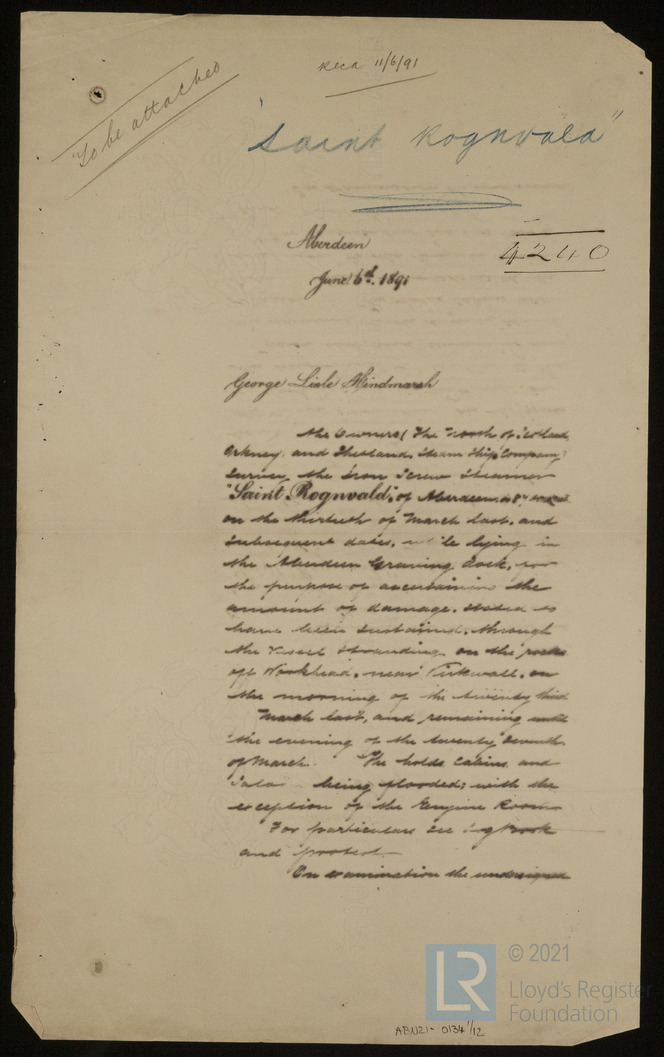 "To be attached
Recd 11/6/91
"Saint Rognvald"
4240
Aberdeen
June 6th. 1891
George Lisle Hindmarsh
the Owners (The North of Scotland,
Orkney and Shetland Steam Ship Company)
Survey the Iron Screw Steamer
"Saint Rognvald", of Aberdeen,
on the thirtieth of March last, and
subsequent dates, while lying in
the Aberdeen Graving Dock, for
the purpose of ascertaining the
amount of damage, stated to
have been sustained, through
the Vessel Stranding on the rocks
off Workhead, near Kirkwall, on
the morning of the twenty third
March last, and remaining until
the evening of the twenty seventh
of March. The holds Cabins and
being flooded; with the
exception of the Engine Room
For particulars see Log Book
and protest.
On examination the undersigned
© 2021
LR
Lloyd's Register
Foundation
ABN21-0134 1/12